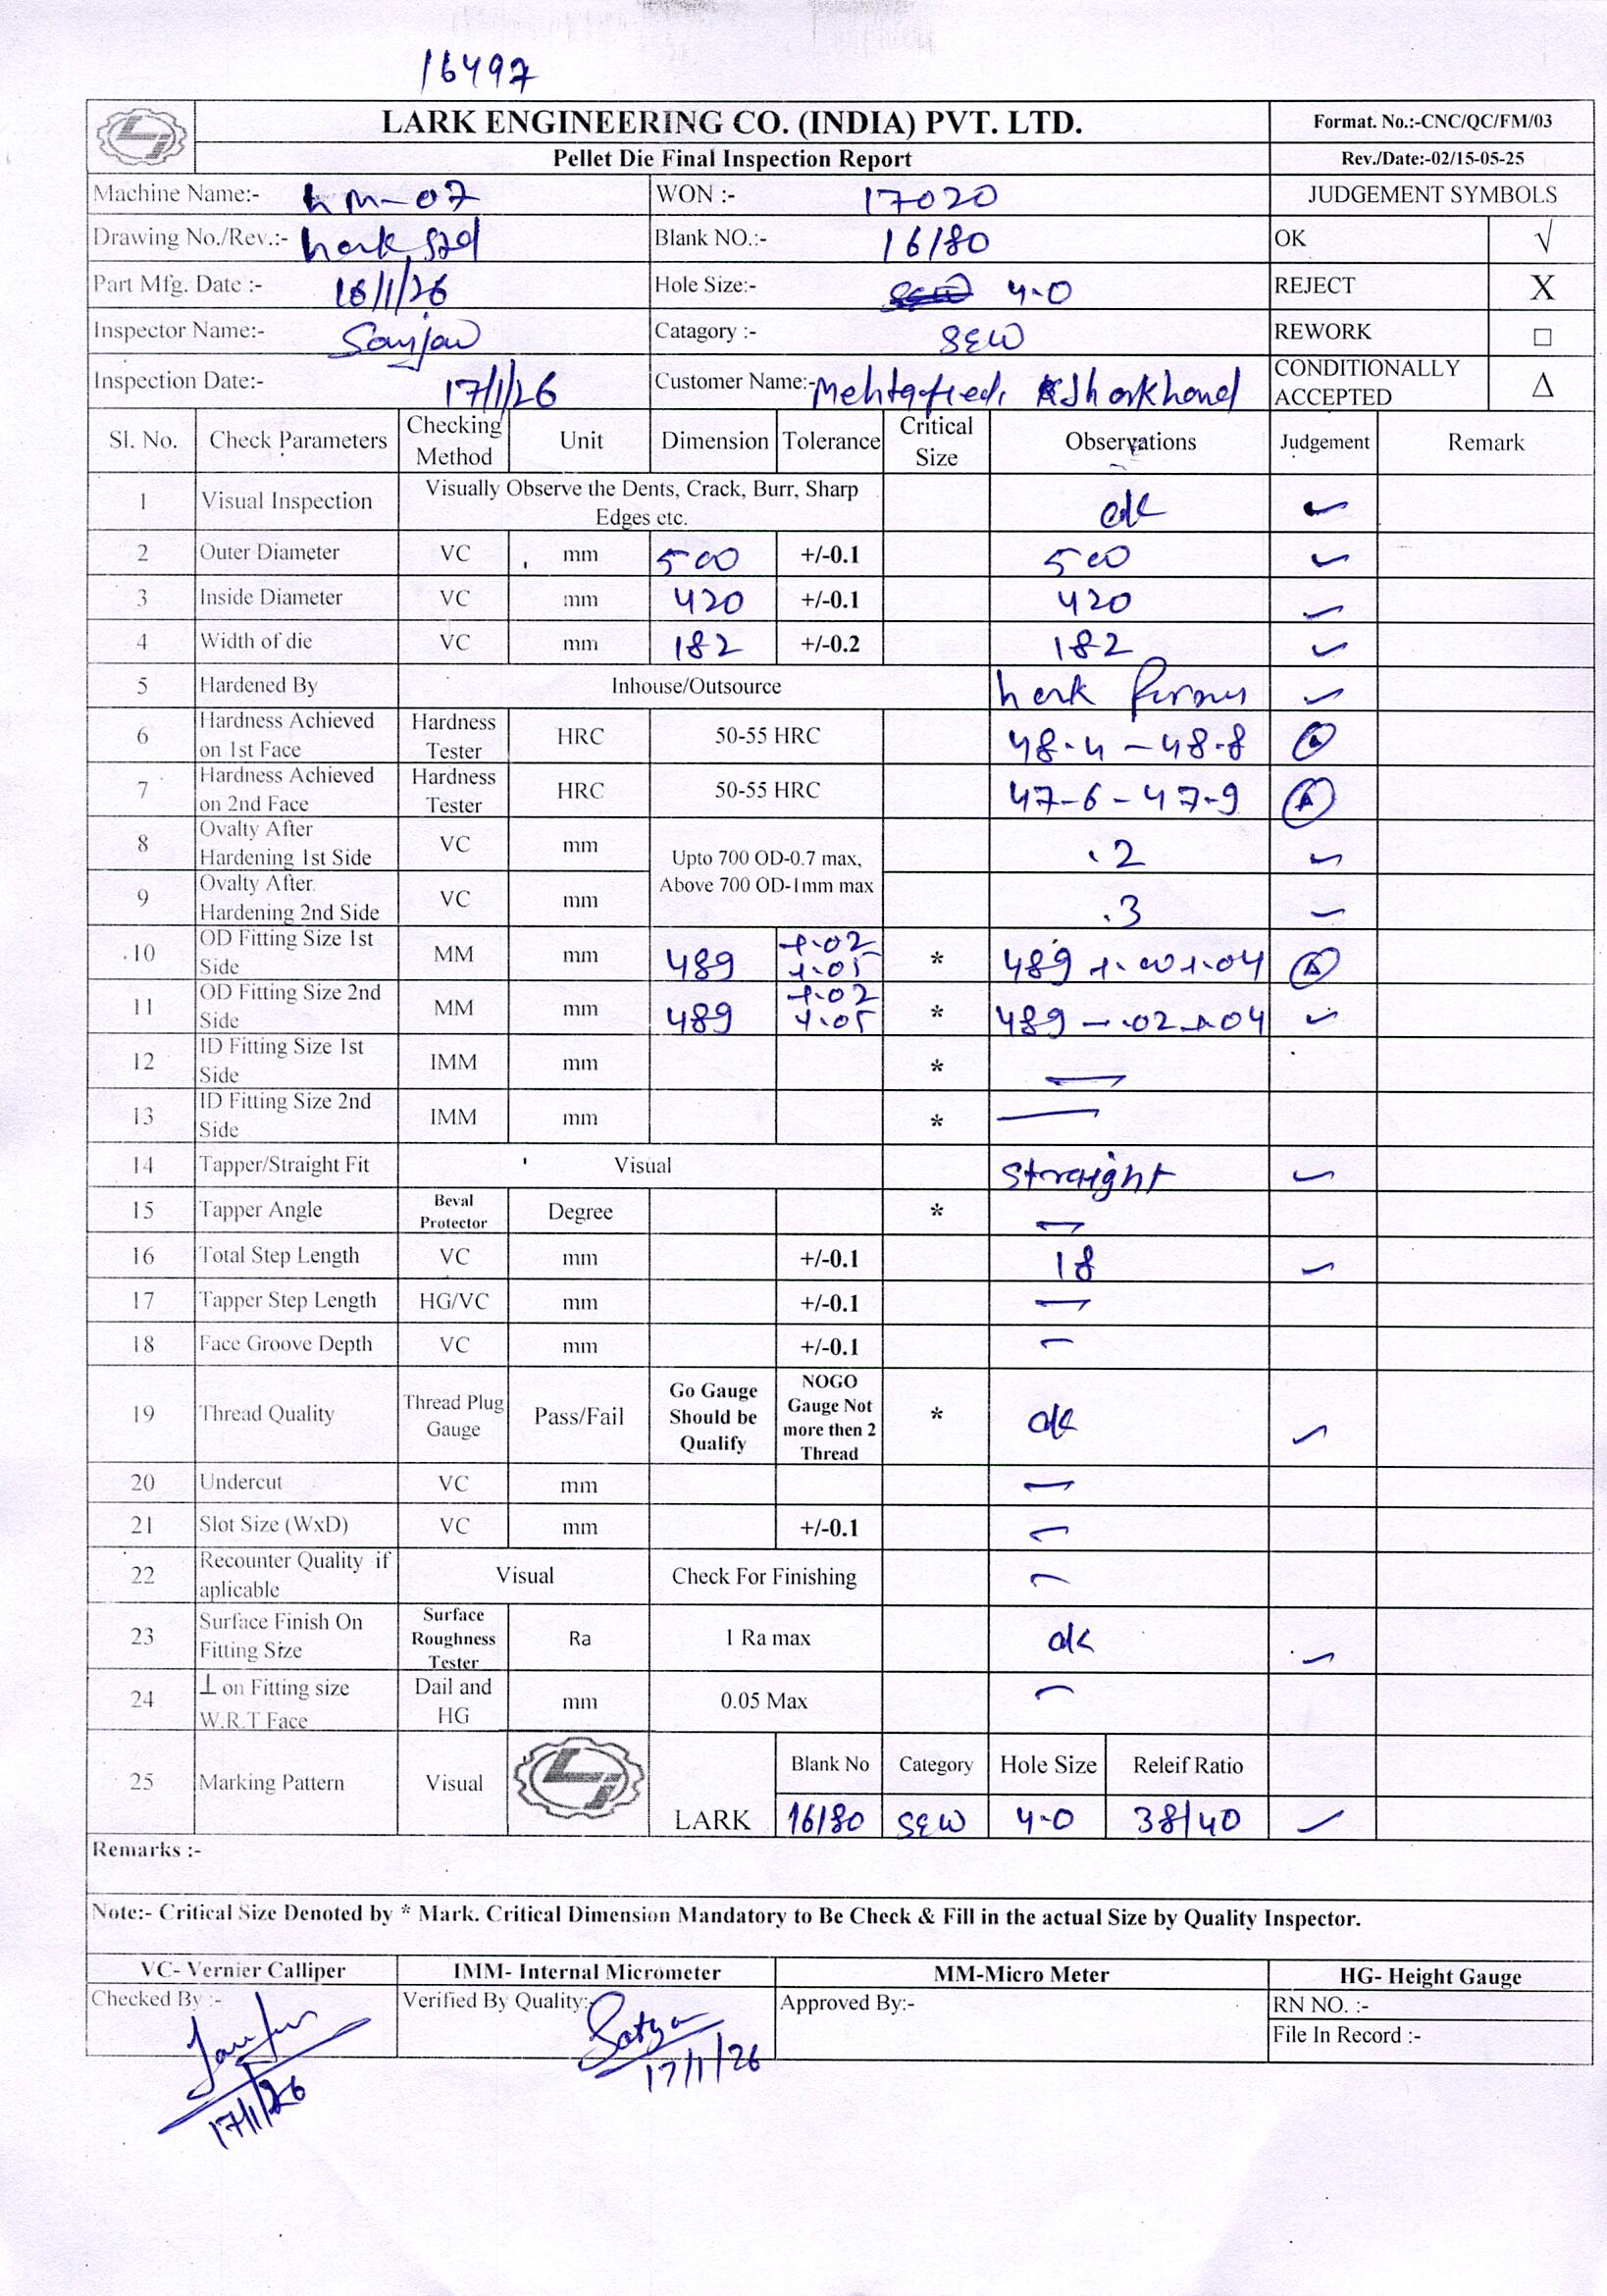 16497
LARK ENGINEERING CO. (INDIA) PVT. LTD. Format. No.:-CNC/QC/FM/03
Pellet Die Final Inspection Report Rev./Date:-02/15-05-25
Machine Name:- hm-07 WON :- 17020 JUDGEMENT SYMBOLS
Drawing No./Rev.:- Lark std Blank NO.:- 16/80 OK √
Part Mfg. Date :- 16/1/26 Hole Size:- 4.0 REJECT X
Inspector Name:- Sanjav Catagory :- SEW REWORK □
Inspection Date:- 17/1/26 Customer Name:- Mehta feed, Jharkhand CONDITIONALLY ACCEPTED Δ
Sl. No. Check Parameters Checking Method Unit Dimension Tolerance Critical Size Observations Judgement Remark
1 Visual Inspection Visually Observe the Dents, Crack, Burr, Sharp Edges etc. ok ✓
2 Outer Diameter VC mm 500 +/-0.1 500 ✓
3 Inside Diameter VC mm 420 +/-0.1 420 ✓
4 Width of die VC mm 182 +/-0.2 182 ✓
5 Hardened By Inhouse/Outsource Lark ✓
6 Hardness Achieved on 1st Face Hardness Tester HRC 50-55 HRC 48.4 - 48.8
7 Hardness Achieved on 2nd Face Hardness Tester HRC 50-55 HRC 47-6 - 47-9
8 Ovalty After Hardening 1st Side VC mm Upto 700 OD-0.7 max, Above 700 OD-1mm max .2 ✓
9 Ovalty After Hardening 2nd Side VC mm .3 ✓
10 OD Fitting Size 1st Side MM mm 489 +.02 +.05 * 489 +.00 +.04 Δ
11 OD Fitting Size 2nd Side MM mm 489 +.02 +.05 * 489 - .02 .04 ✓
12 ID Fitting Size 1st Side IMM mm * —
13 ID Fitting Size 2nd Side IMM mm * —
14 Tapper/Straight Fit Visual straight ✓
15 Tapper Angle Beval Protector Degree * —
16 Total Step Length VC mm +/-0.1 18 ✓
17 Tapper Step Length HG/VC mm +/-0.1 —
18 Face Groove Depth VC mm +/-0.1 —
19 Thread Quality Thread Plug Gauge Pass/Fail Go Gauge Should be Qualify NOGO Gauge Not more then 2 Thread * ok ✓
20 Undercut VC mm —
21 Slot Size (WxD) VC mm +/-0.1 —
22 Recounter Quality if aplicable Visual Check For Finishing —
23 Surface Finish On Fitting Size Surface Roughness Tester Ra 1 Ra max ok ✓
24 ⊥ on Fitting size W.R.T Face Dail and HG mm 0.05 Max —
25 Marking Pattern Visual LARK Blank No Category Hole Size Releif Ratio
16/80 SEW 4.0 38/40 ✓
Remarks :-
Note:- Critical Size Denoted by * Mark. Critical Dimension Mandatory to Be Check & Fill in the actual Size by Quality Inspector.
VC- Vernier Calliper IMM- Internal Micrometer MM-Micro Meter HG- Height Gauge
Checked By :- Verified By Quality:- Satya Approved By:- RN NO. :-
File In Record :-
17/1/26 17/1/26